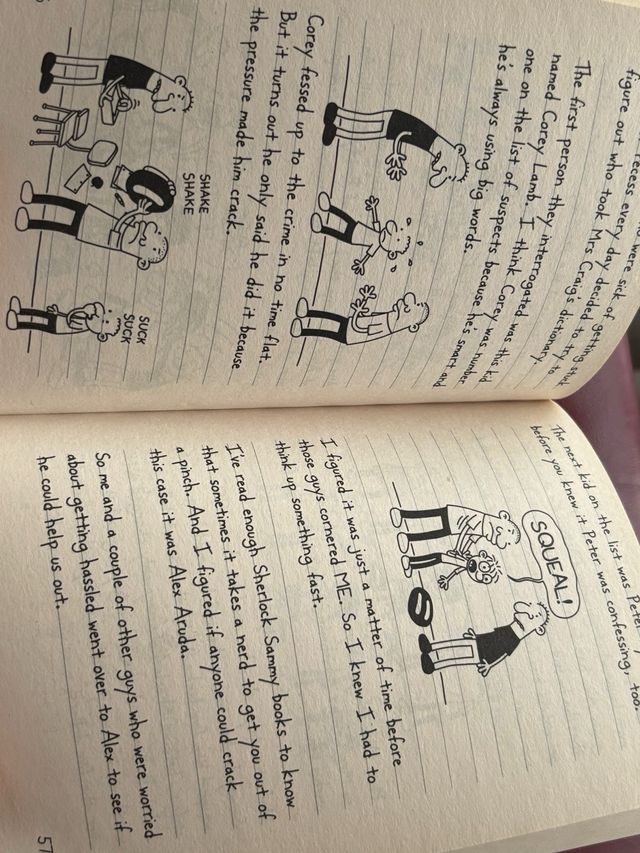 recess every day were sick of getting stuck
figure out who took Mrs Craig's dictionary.
The first person they interrogated was this kid
named Corey Lamb. I think Corey was number
one on the list of suspects because he's smart and
he's always using big words.
Corey fessed up to the crime in no time flat.
But it turns out he only said he did it because
the pressure made him crack.
SHAKE
SHAKE
SUCK
SUCK
The next kid on the list was Peter
before you knew it Peter was confessing, too.
SQUEAL!
I figured it was just a matter of time before
those guys cornered ME. So I knew I had to
think up something fast.
I've read enough Sherlock Sammy books to know
that sometimes it takes a nerd to get you out of
a pinch. And I figured if anyone could crack
this case it was Alex Aruda.
So me and a couple of other guys who were worried
about getting hassled went over to Alex to see if
he could help us out.
57